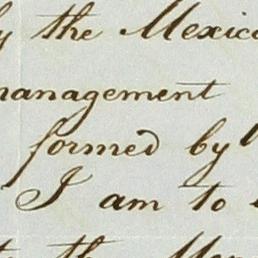 by the Mexico
management
formed by
I am to
to the Mex